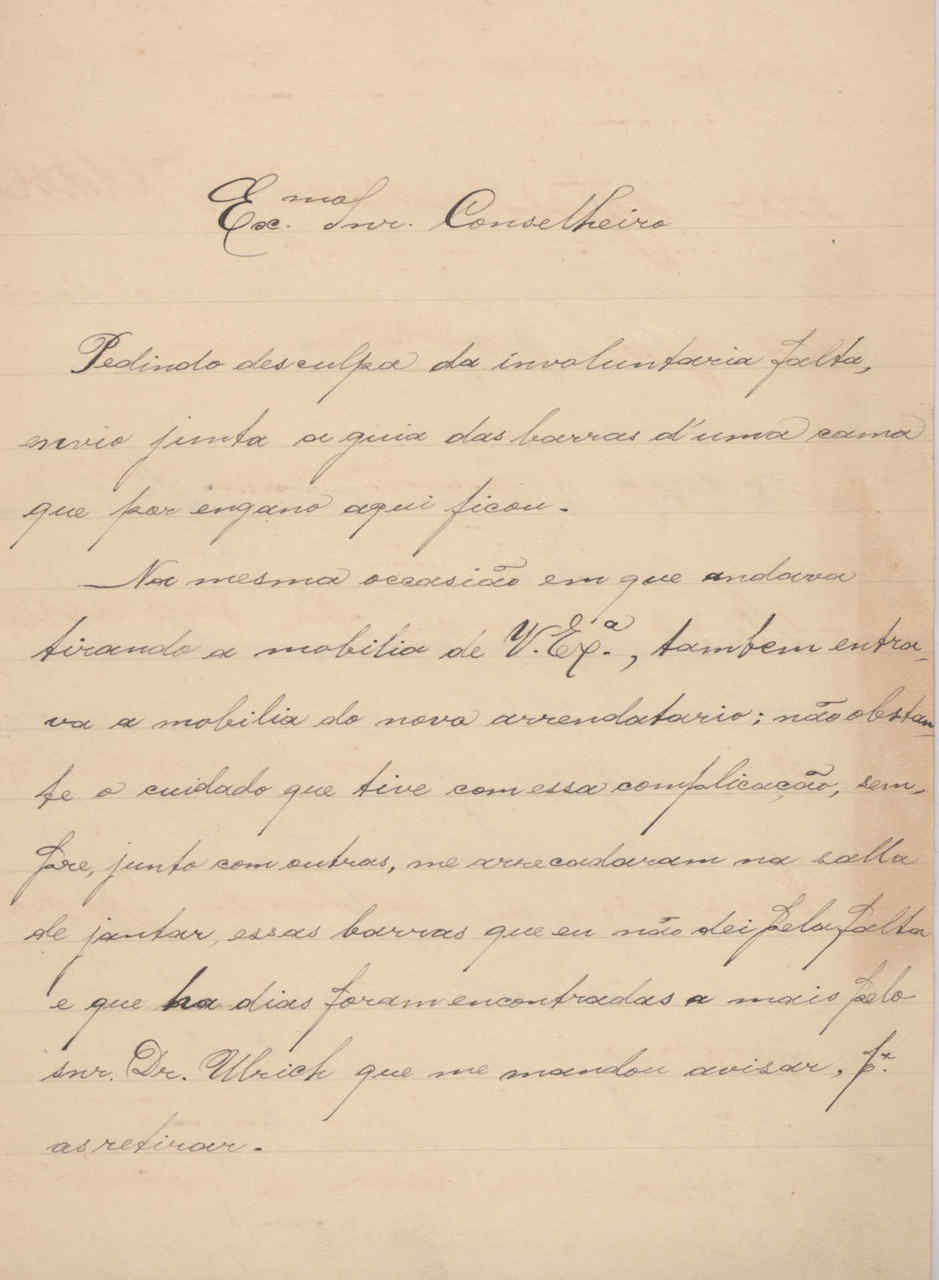 Ex.mo Snr. Conselheiro
Pedindo desculpa da involuntaria falta,
envio junta a guia das barras d'uma cama
que por engano aqui ficou.
Na mesma occasião em que andava
tirando a mobilia de V. Ex.ª, tambem entra-
va a mobilia do novo arrendatario; não obstan-
te o cuidado que tive com essa complicação, sem-
pre, junto com outras, me arrecadaram na salla
de jantar, essas barras que eu não dei pela falta
e que ha dias foram encontradas a mais pelo
snr. Dr. Ulrich que me mandou avisar, p.ª
as retirar.